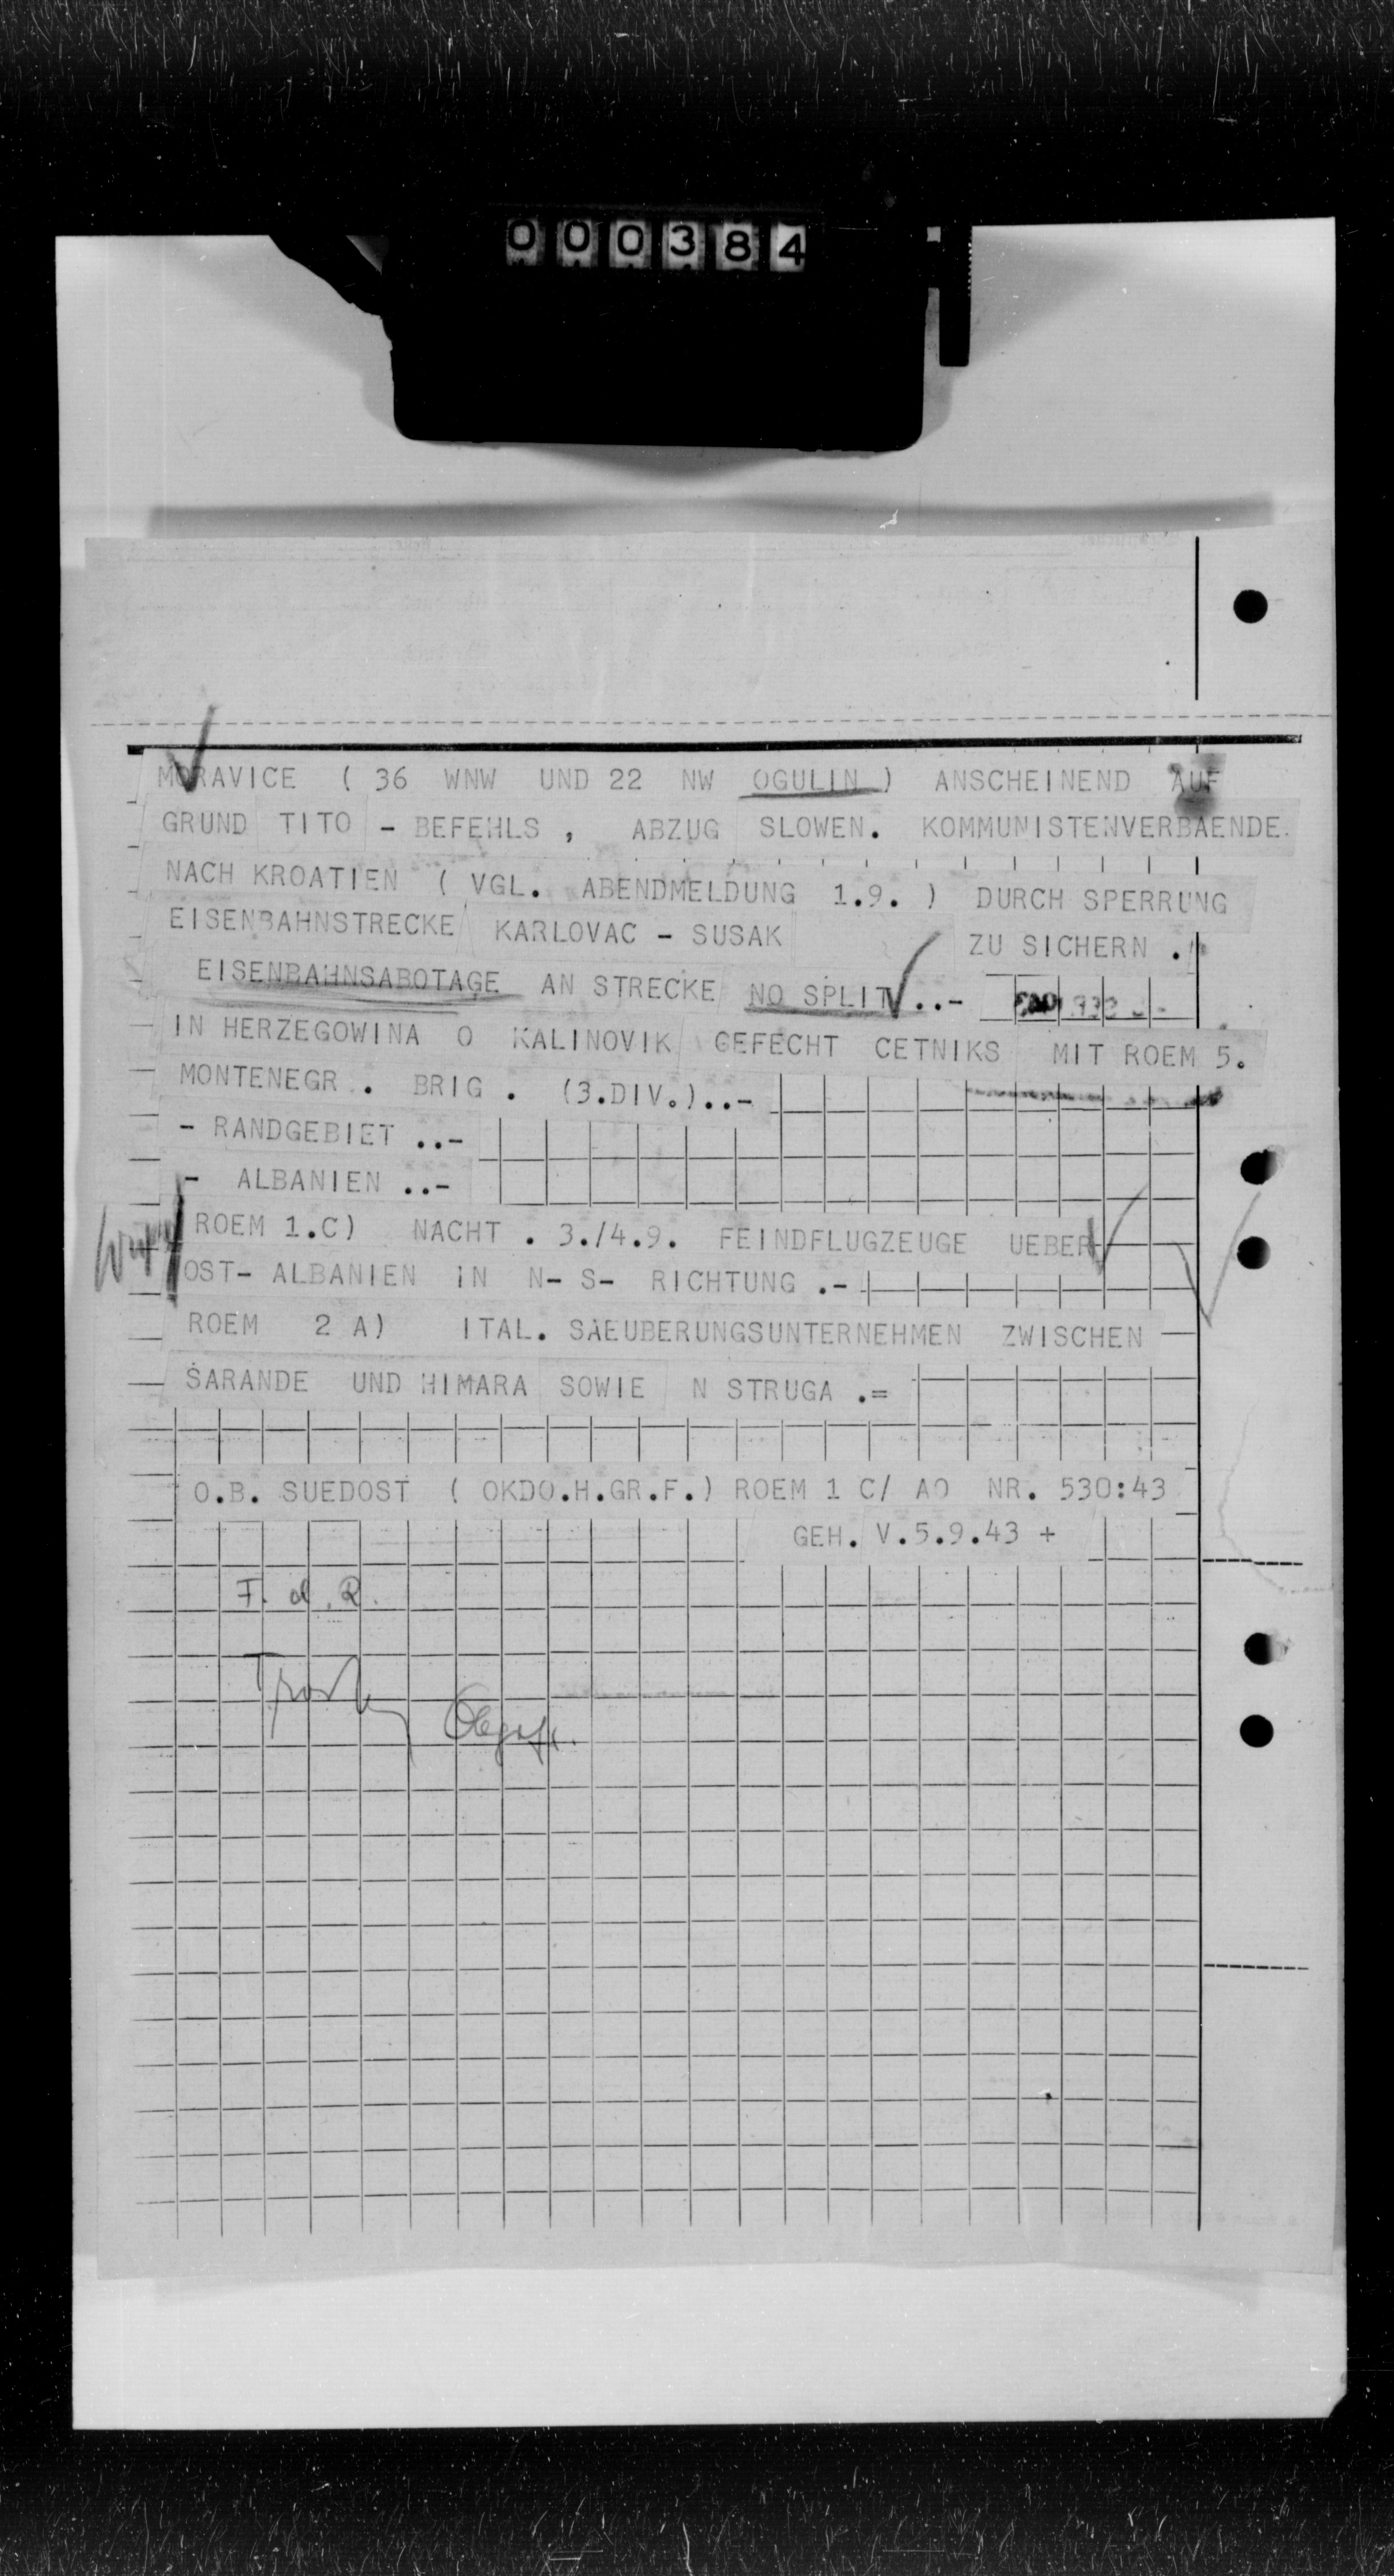 000384
MORAVICE ( 36 WNW UND 22 NW OGULIN ) ANSCHEINEND AUF
GRUND TITO - BEFEHLS , ABZUG SLOWEN. KOMMUNISTENVERBAENDE.
NACH KROATIEN ( VGL. ABENDMELDUNG 1.9. ) DURCH SPERRUNG
EISENBAHNSTRECKE KARLOVAC - SUSAK ZU SICHERN .
EISENBAHNSABOTAGE AN STRECKE NO SPLIT ..-
IN HERZEGOWINA O KALINOVIK GEFECHT CETNIKS MIT ROEM 5.
MONTENEGR . BRIG . (3.DIV.)..-
- RANDGEBIET ..-
- ALBANIEN ..-
ROEM 1.C) NACHT . 3./4.9. FEINDFLUGZEUGE UEBER
OST- ALBANIEN IN N- S- RICHTUNG .-
ROEM 2 A) ITAL. SAEUBERUNGSUNTERNEHMEN ZWISCHEN
SARANDE UND HIMARA SOWIE N STRUGA .=
O.B. SUEDOST ( OKDO.H.GR.F.) ROEM 1 C/ AO NR. 530:43
GEH. V.5.9.43 +
F. d. R.